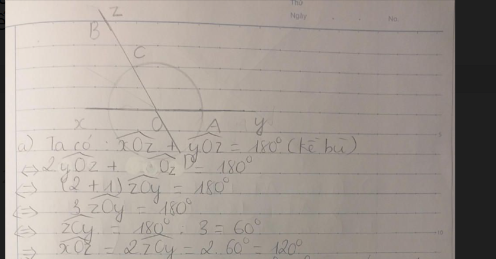 Thứ
Ngày No.
z
B
C
x O A y
D
a) Ta có : xOz + yOz = 180° (kề bù)
⇔ 2yOz + Oz = 180°
⇔ (2 + 1) zOy = 180°
⇔ 3 zOy = 180°
⇔ zOy = 180° : 3 = 60°
⇒ xOz = 2.zOy = 2.60° = 120°